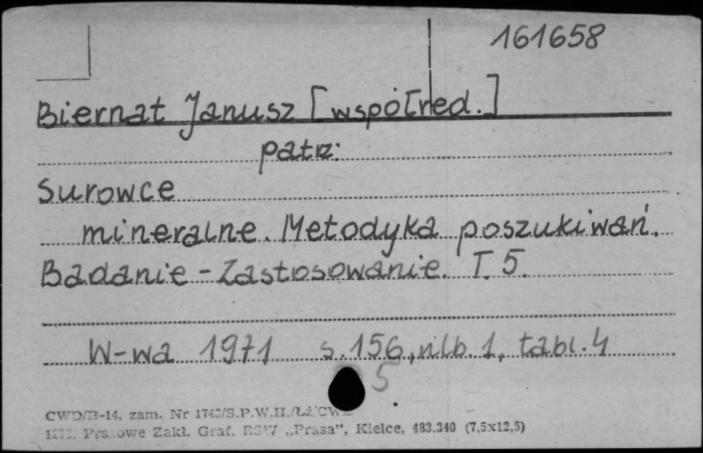 161658
Biernat Janusz [współred.]
patrz:
Surowce
mineralne. Metodyka poszukiwań.
Badanie - Zastosowanie. T. 5.
W-wa 1971 s. 156, nlb. 1, tabl. 4
5
CWD/B-14, zam. Nr
Prasowe Zakł. Graf. RSW „Prasa”, Kielce, 483.340 (7,5x12,5)